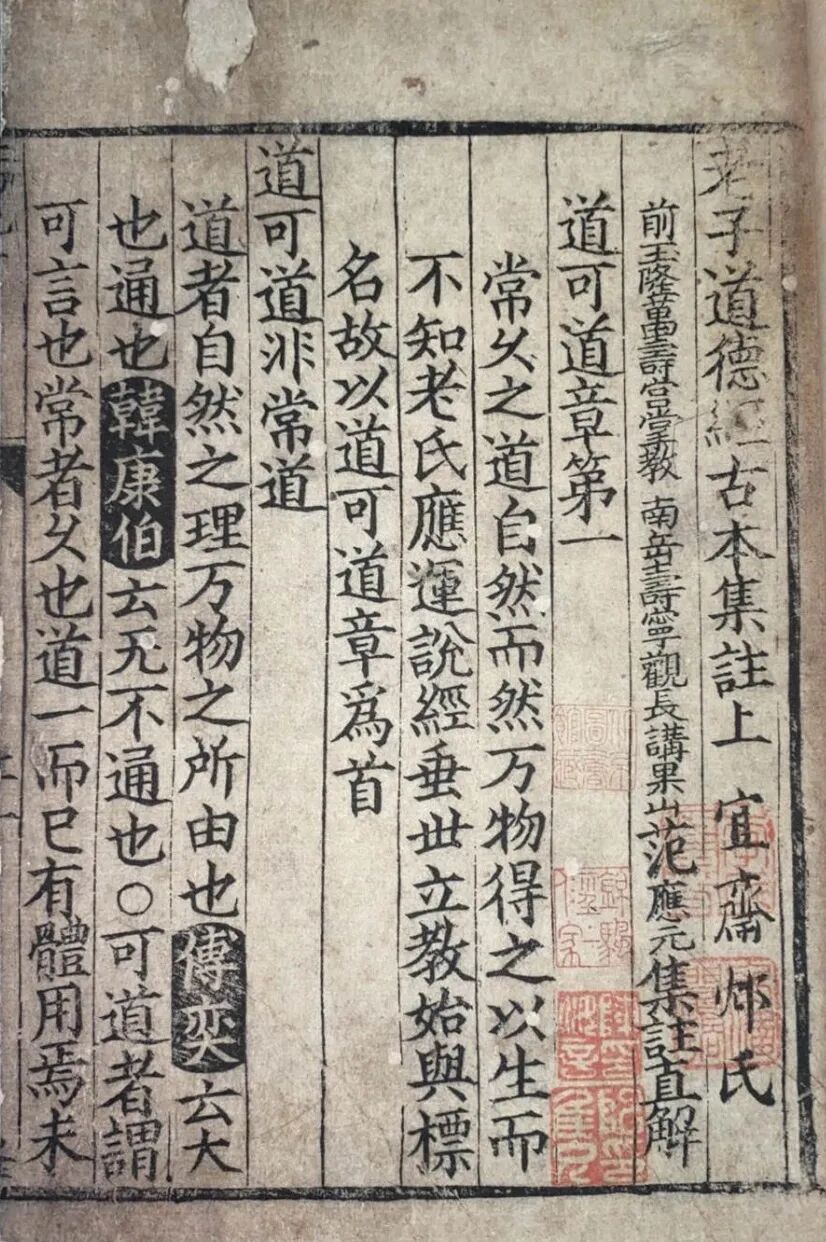 老子道德經古本集註上 宜齋 氏
前玉隆萬壽宮掌教 南岳壽寧觀長講果山范應元集註直解
道可道章第一
常久之道自然而然万物得之以生而
不知老氏應運說經垂世立教始與標
名故以道可道章爲首
道可道非常道
道者自然之理万物之所由也傅奕云大
也通也韓康伯云无不通也○可道者謂
可言也常者久也道一而已有體用焉未